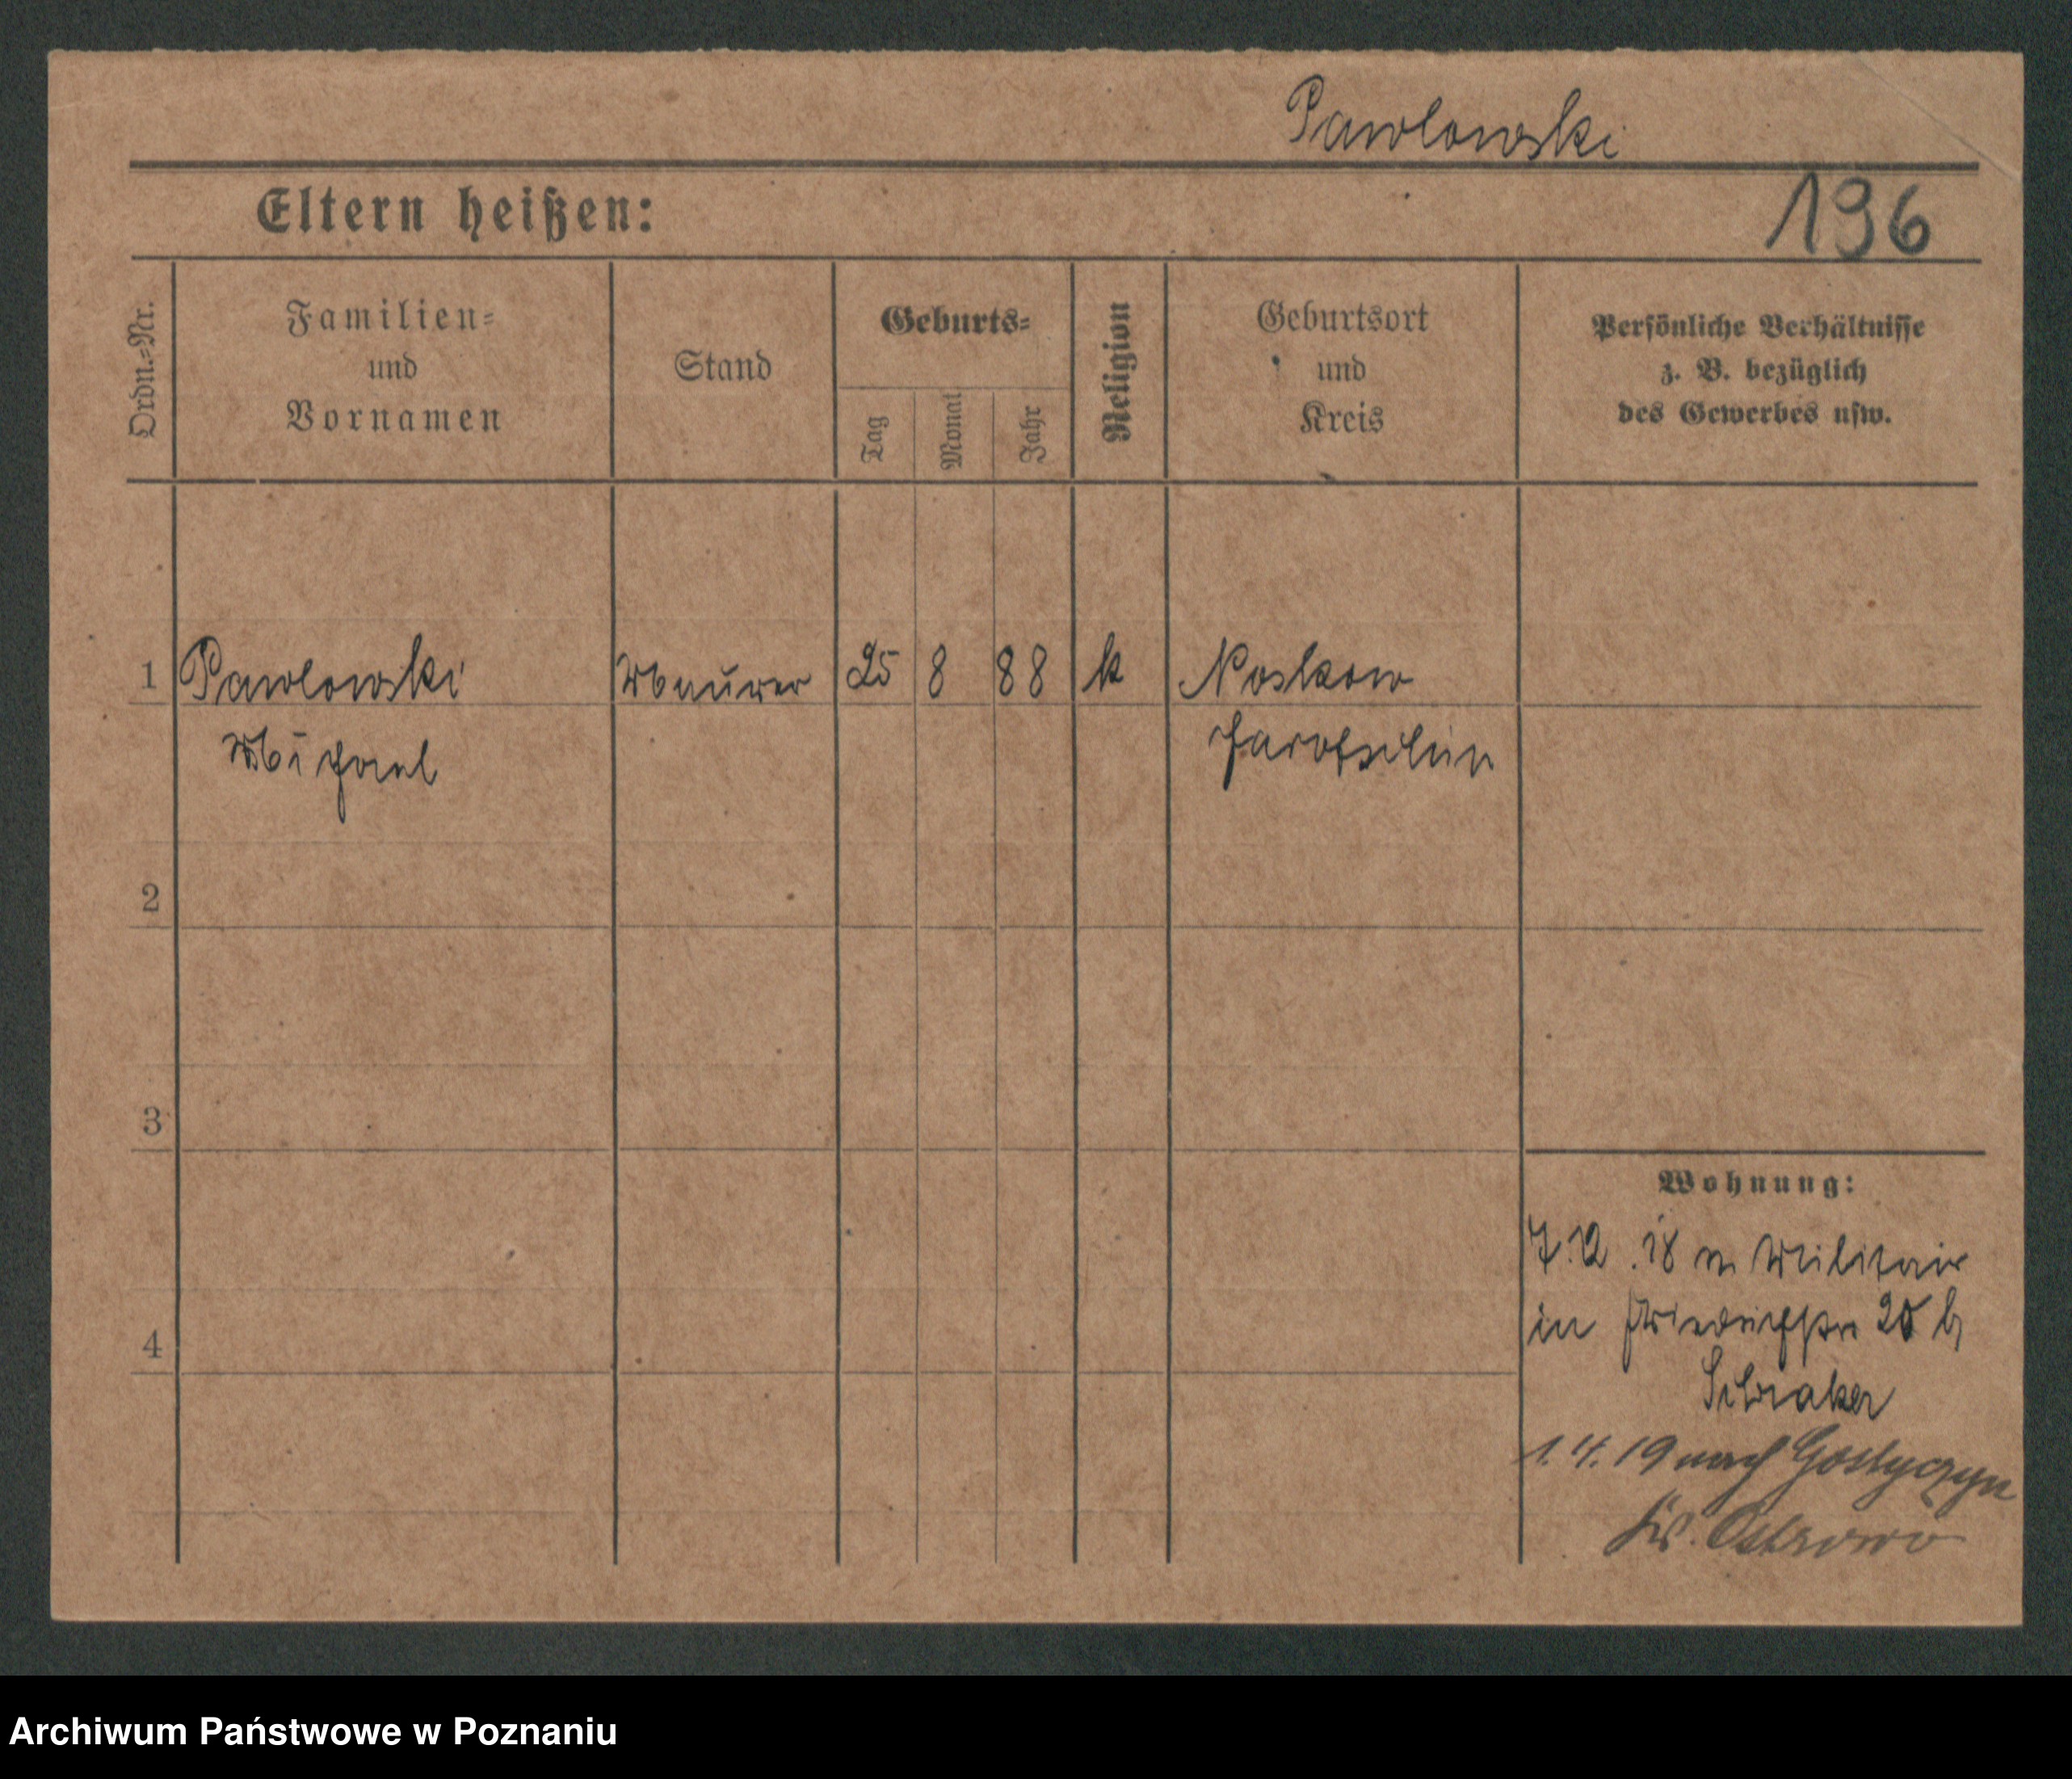 Pawlowski
Eltern heißen:
196
Ordn.-Nr.
Familien-
und
Vornamen
Stand
Geburts-
Tag
Monat
Jahr
Religion
Geburtsort
und
Kreis
Persönliche Verhältnisse
z. B. bezüglich
des Gewerbes usw.
1 Pawlowski Maurer 25 8 88 k Noskow
Michael Jarotschin
2
3
4
Wohnung:
7.12.18 v. Militair
in Friedrichstr 20 b
1.4.19 nach Gostyczyn
Kr. Ostrowo
Archiwum Państwowe w Poznaniu